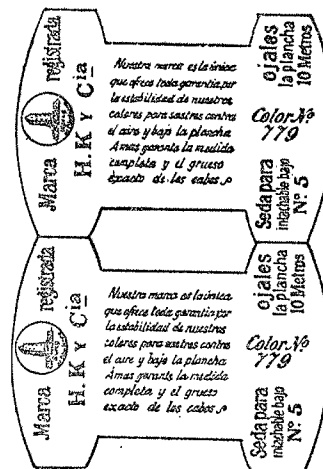 Marca registrada
H. K Y Cía
Nuestra marca es la única
que ofrece toda garantía por
la estabilidad de nuestros
colores para sastres contra
el aire y bajo la plancha
Amas garants. la medida
completa y el grueso
exacto de los cabos.
Seda para ojales
intachable bajo la plancha
Nº 5 10 Metros
Color Nº
779
Marca registrada
H. K Y Cía
Nuestra marca es la única
que ofrece toda garantía por
la estabilidad de nuestros
colores para sastres contra
el aire y bajo la plancha
Amas garants. la medida
completa y el grueso
exacto de los cabos.
Seda para ojales
intachable bajo la plancha
Nº 5 10 Metros
Color Nº
779